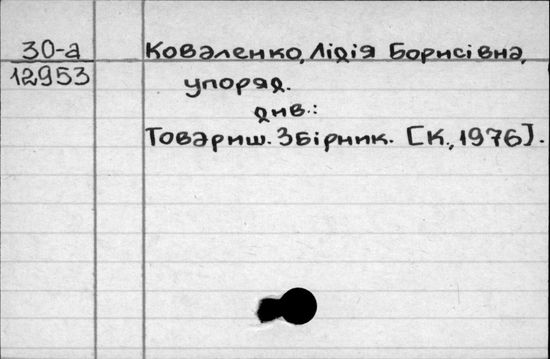 30-а
12953
Коваленко, Лідія Борисівна,
упоряд.
див.:
Товариш. Збірник. [К., 1976].